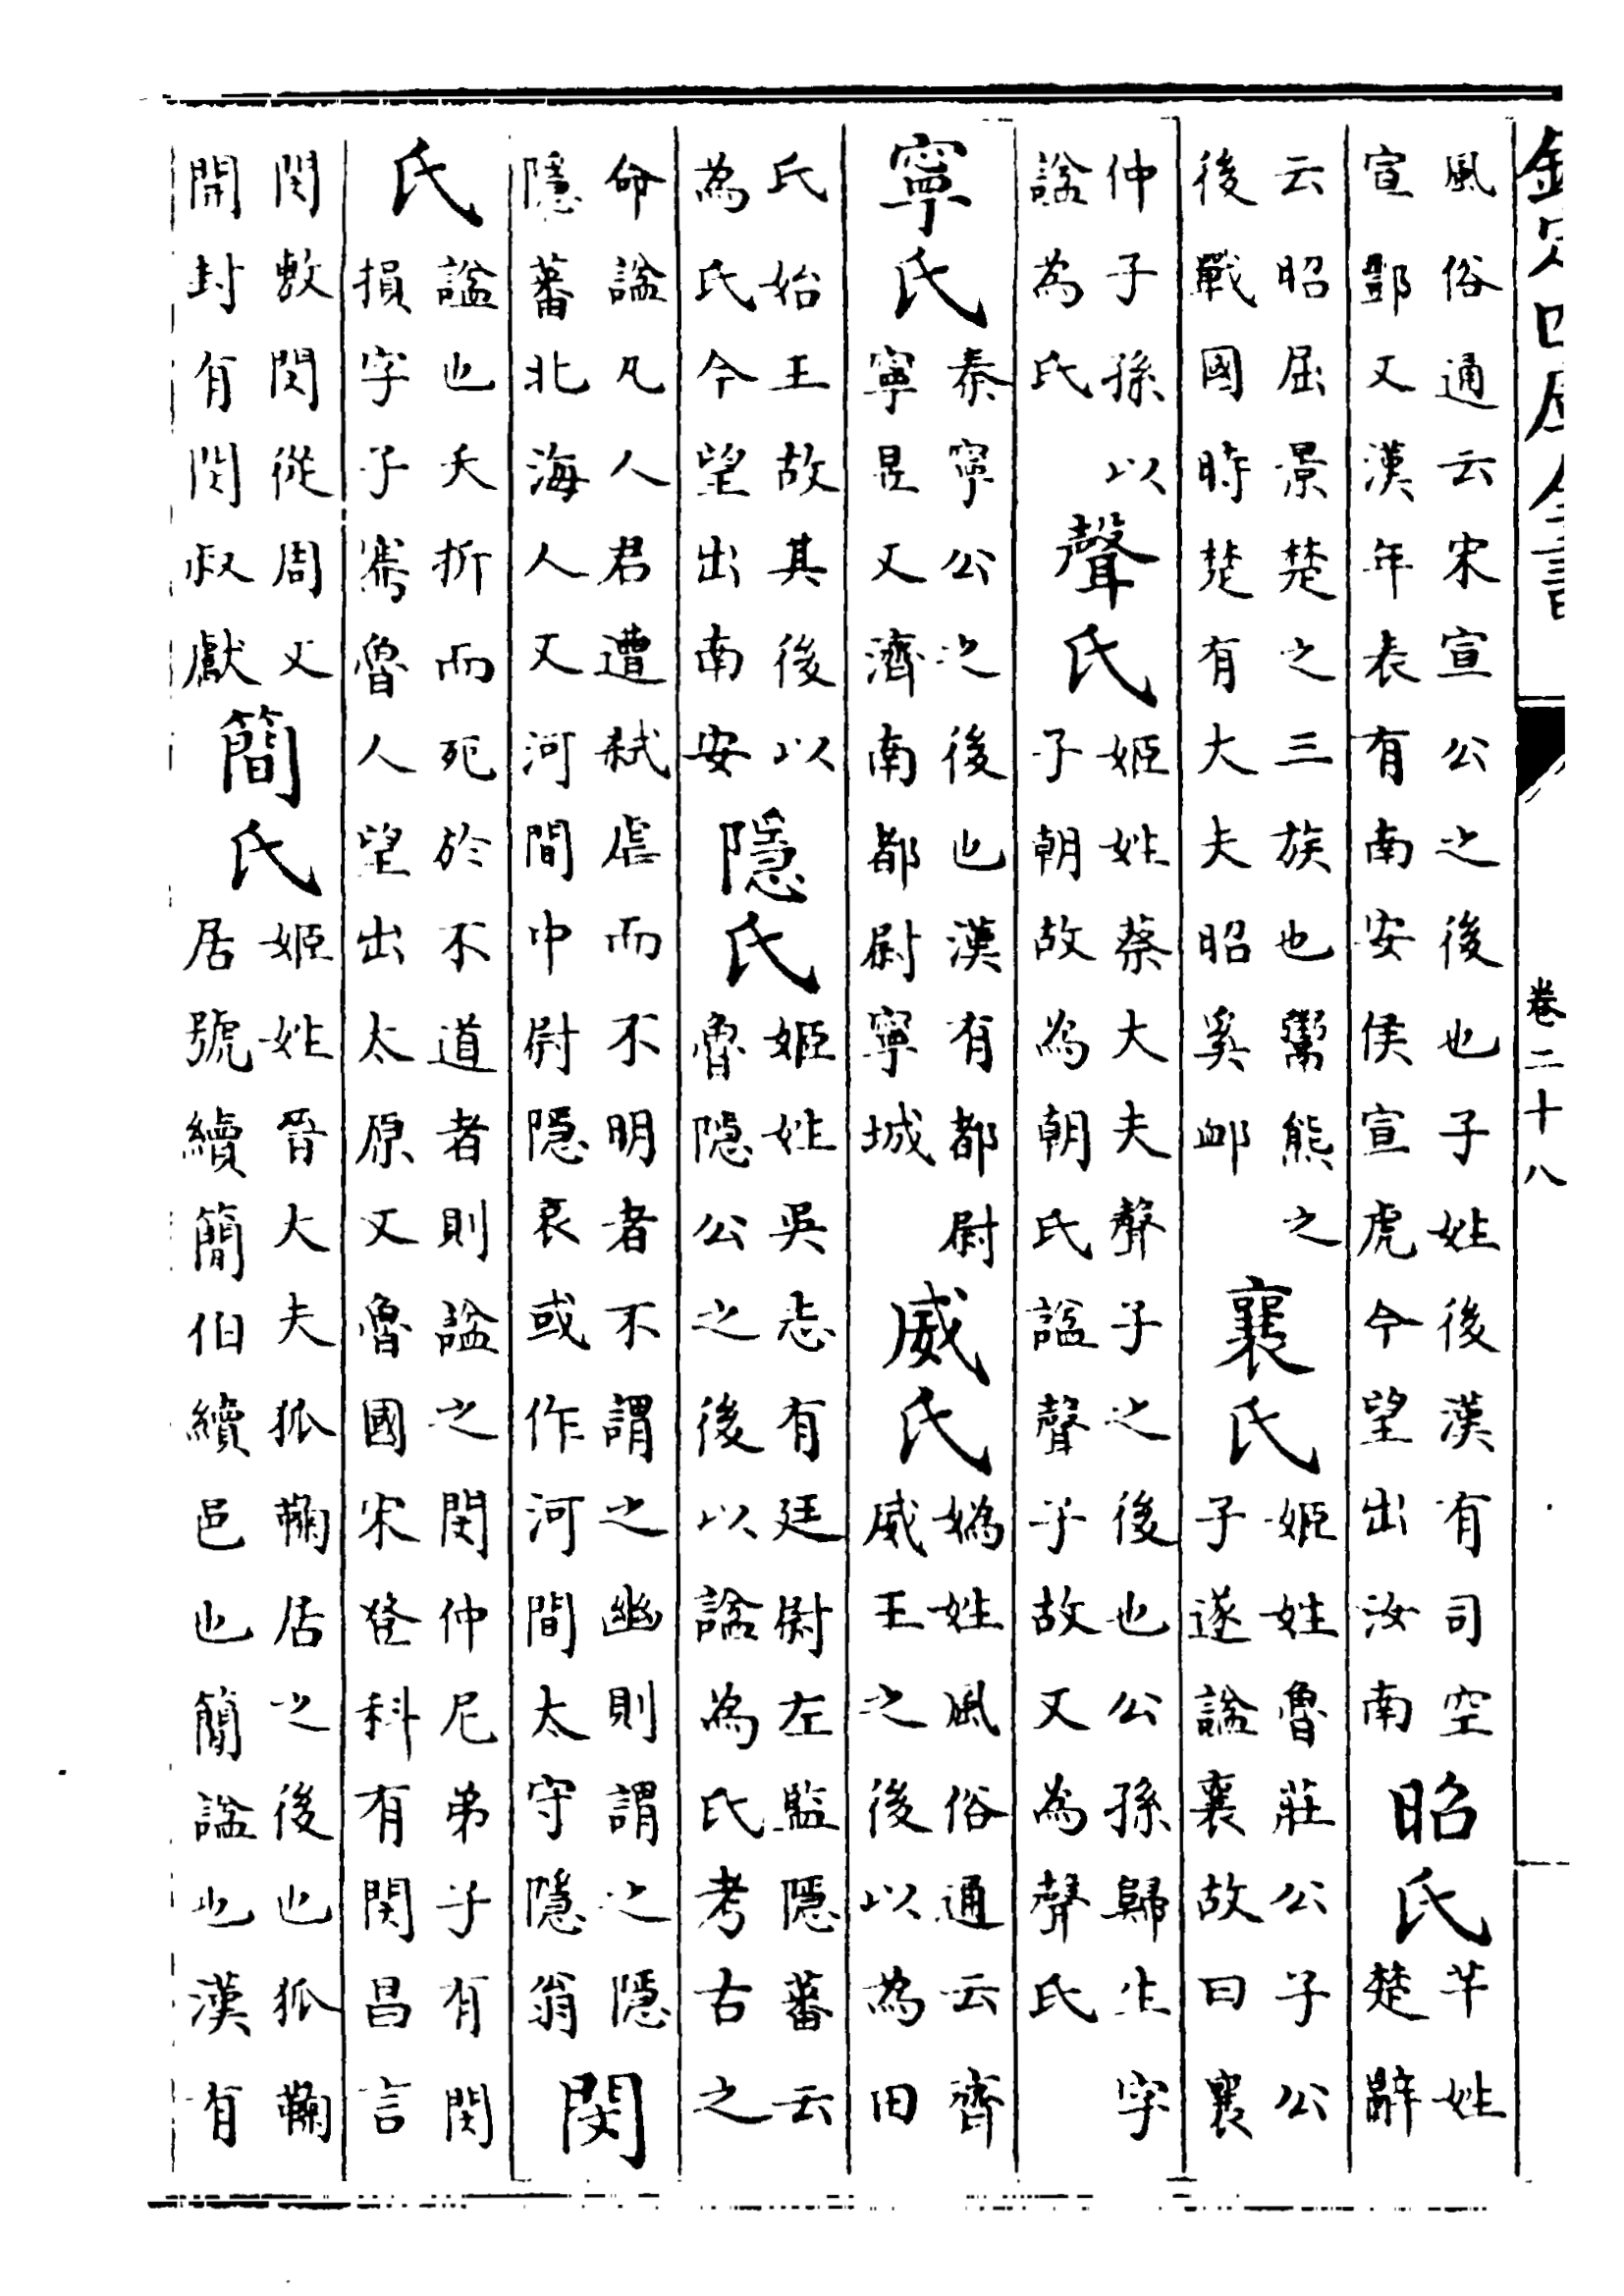 欽定四庫全書
卷二十八
風俗通云宋宣公之後也子姓後漢有司空
宣酆又漢年表有南安侯宣虎今望出汝南
昭氏
芊姓
楚辭
云昭屈景楚之三族也鬻熊之
後戰國時楚有大夫昭奚邮
襄氏
姬姓魯莊公子公
子遂諡襄故曰襄
仲子孫以
諡為氏
聲氏
姬姓蔡大夫聲子之後也公孫歸生字
子朝故為朝氏諡聲子故又為聲氏
寧氏
秦寧公之後也漢有都尉
寧昱又濟南都尉寧城
威氏
媯姓風俗通云齊
威王之後以為田
氏始王故其後以
為氏今望出南安
隱氏
姬姓吳志有廷尉左監隱蕃云
魯隱公之後以諡為氏考古之
命諡凡人君遭弑虐而不明者不謂之幽則謂之隱
隱蕃北海人又河間中尉隱裒或作河間太守隱翁
閔
氏
諡也夭折而死於不道者則諡之閔仲尼弟子有閔
損字子騫魯人望出太原又魯國宋登科有閔昌言
閔斁閔從周又
開封有閔叔獻
簡氏
姬姓晉大夫狐鞫居之後也狐鞫
居號續簡伯續邑也簡諡也漢有